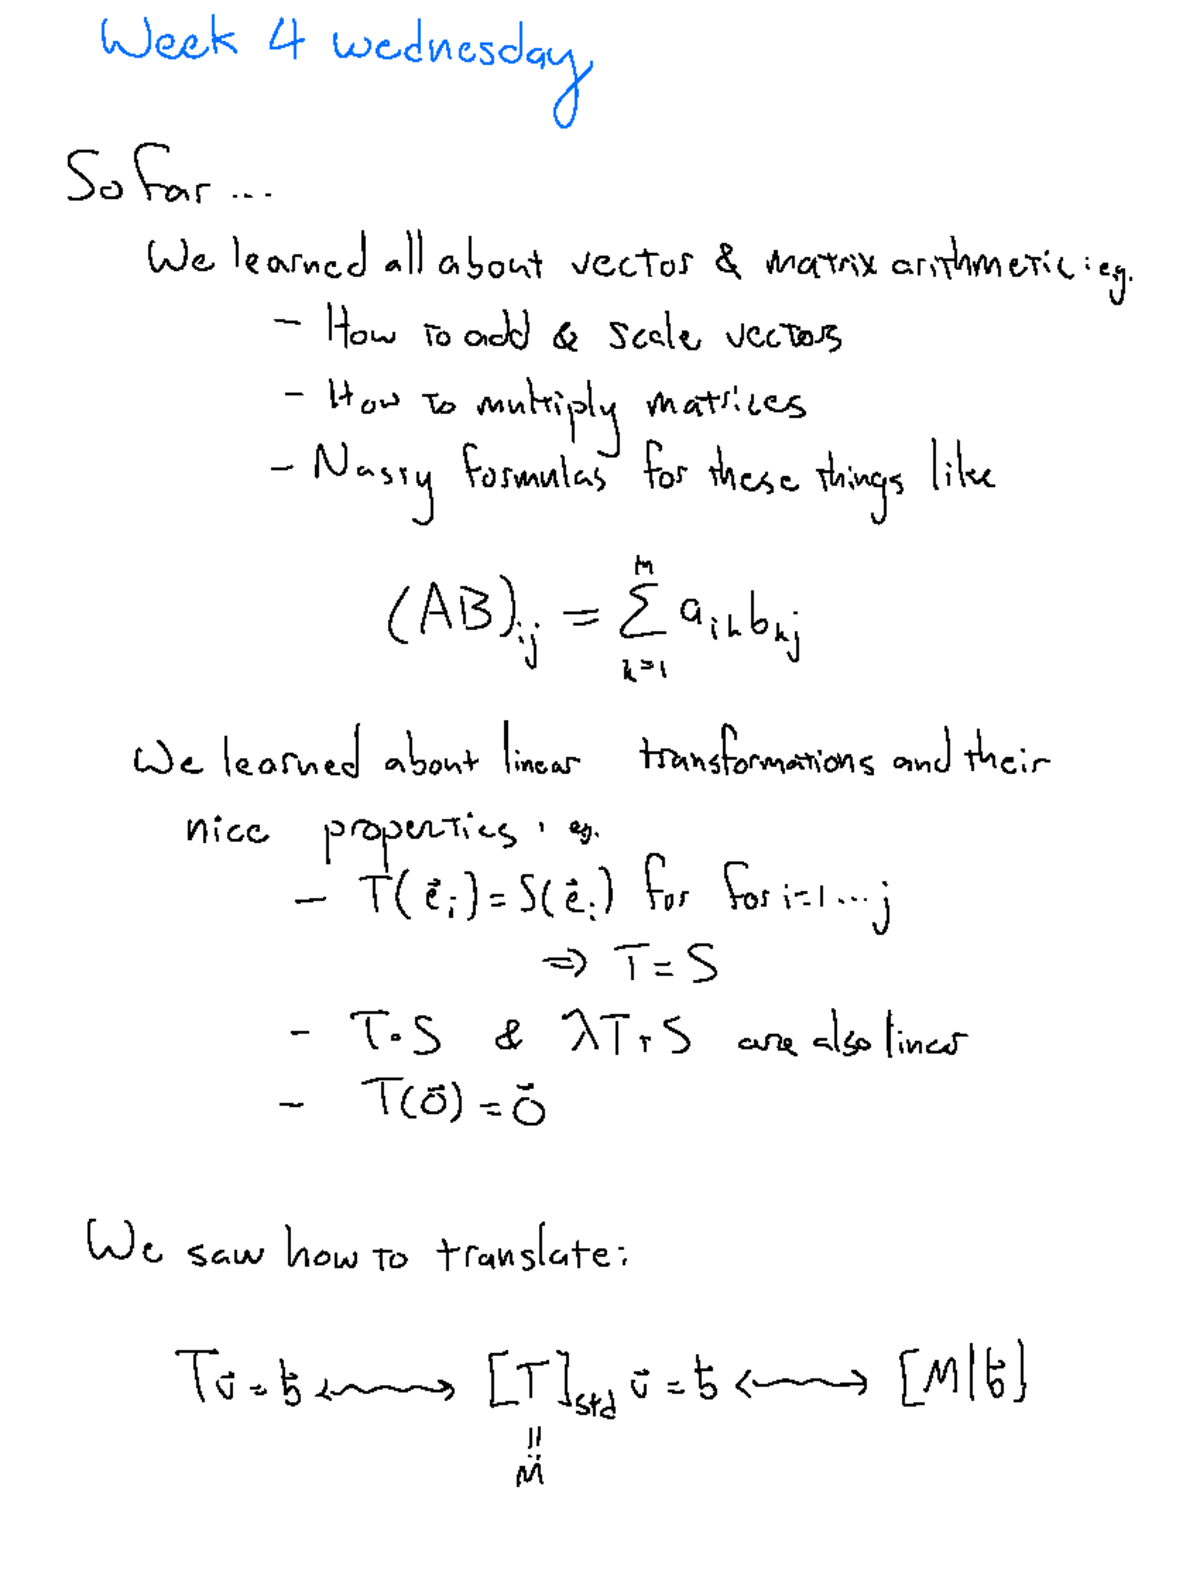 Week 4 wednesday
So far ...
We learned all about vector & matrix arithmetic: eg.
- How to add & scale vectors
- How to multiply matrices
- Nasty formulas for these things like
m
(AB)ij = Σ aik bkj
k=1
We learned about linear transformations and their
nice properties, eg.
- T(e⃗i) = S(e⃗i) for for i=1...j
⇒ T = S
- T∘S & λT+S are also linear
- T(0⃗) = 0⃗
We saw how to translate:
Tv⃗ = b⃗ <~~~> [T]std v⃗ = b⃗ <~~~> [M|b⃗]
=:
M